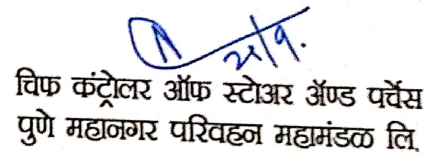 २५/१.
चिफ कंट्रोलर ऑफ स्टोअर ॲण्ड पर्चेस
पुणे महानगर परिवहन महामंडळ लि.